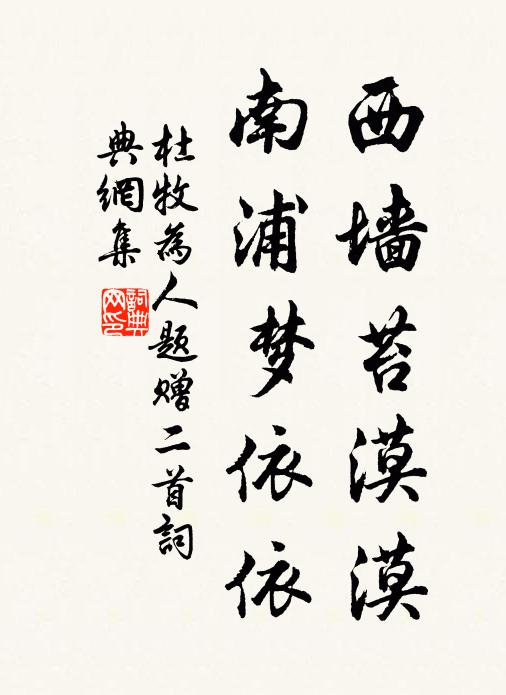 西墙苔漠漠
南浦梦依依
杜牧為人题赠二首詞
典網集
詞典网印